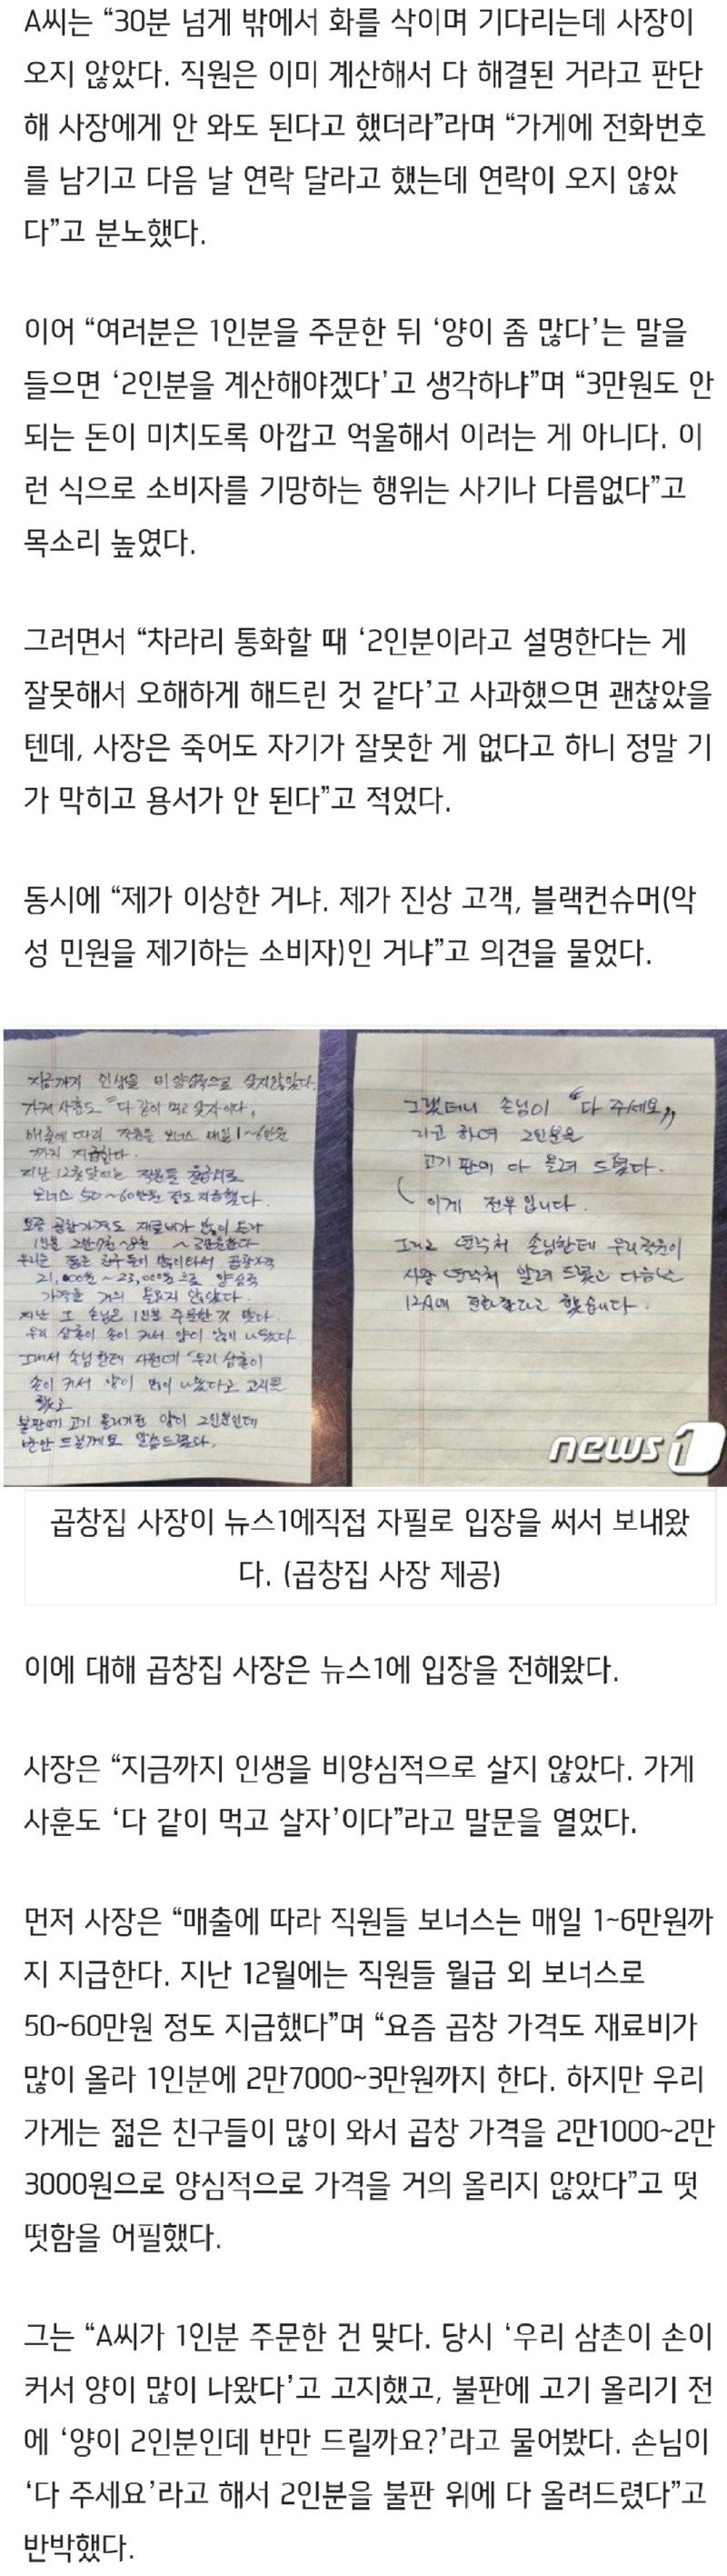 A씨는 “30분 넘게 밖에서 화를 삭이며 기다리는데 사장이
오지 않았다. 직원은 이미 계산해서 다 해결된 거라고 판단
해 사장에게 안 와도 된다고 했더라”라며 “가게에 전화번호
를 남기고 다음 날 연락 달라고 했는데 연락이 오지 않았
다”고 분노했다.
이어 “여러분은 1인분을 주문한 뒤 ‘양이 좀 많다’는 말을
들으면 ‘2인분을 계산해야겠다’고 생각하냐”며 “3만원도 안
되는 돈이 미치도록 아깝고 억울해서 이러는 게 아니다. 이
런 식으로 소비자를 기망하는 행위는 사기나 다름없다”고
목소리 높였다.
그러면서 “차라리 통화할 때 ‘2인분이라고 설명한다는 게
잘못해서 오해하게 해드린 것 같다’고 사과했으면 괜찮았을
텐데, 사장은 죽어도 자기가 잘못한 게 없다고 하니 정말 기
가 막히고 용서가 안 된다”고 적었다.
동시에 “제가 이상한 거냐. 제가 진상 고객, 블랙컨슈머(악
성 민원을 제기하는 소비자)인 거냐”고 의견을 물었다.
지금까지 인생을 비양심적으로 살지않았다.
가게 사훈도 "다 같이 먹고 살자이다,
매출에 따라 직원들 보너스 매일 1~6만원
까지 지급한다.
지난 12월달에는 직원들 월급외로
보너스 50~60만원 정도 지급했다.
요즘 곱창가격도 재료비가 많이 올라
1인분 2만7천~ ~3만원한다
우리는 젊은 친구들이 많이와서 곱창가격
21,000원~23,000원으로 양심적
가격을 거의 올리지 않았다.
지난 그 손님은 1인분 주문한것 맞다
우리 삼촌이 손이 커서 양이 많이 나왔다
그래서 손님한테 사전에 "우리 삼촌이
손이 커서 양이 많이 나왔다고 고지를
했고
불판에 고기 올리기전 양이 2인분인데
반만 드릴께요 말씀드렸다,
그랬더니 손님이 "다 주세요,,
라고 하여 2인분을
고기 판에 다 올려 드렸다.
이게 전부입니다.
그리고 연락처 손님한테 우리직원이
사장 연락처 알려 드렸고 다음날
12시에 전화한다고 했습니다.
news1
곱창집 사장이 뉴스1에직접 자필로 입장을 써서 보내왔
다. (곱창집 사장 제공)
이에 대해 곱창집 사장은 뉴스1에 입장을 전해왔다.
사장은 “지금까지 인생을 비양심적으로 살지 않았다. 가게
사훈도 ‘다 같이 먹고 살자’이다”라고 말문을 열었다.
먼저 사장은 “매출에 따라 직원들 보너스는 매일 1~6만원까
지 지급한다. 지난 12월에는 직원들 월급 외 보너스로
50~60만원 정도 지급했다”며 “요즘 곱창 가격도 재료비가
많이 올라 1인분에 2만7000~3만원까지 한다. 하지만 우리
가게는 젊은 친구들이 많이 와서 곱창 가격을 2만1000~2만
3000원으로 양심적으로 가격을 거의 올리지 않았다”고 떳
떳함을 어필했다.
그는 “A씨가 1인분 주문한 건 맞다. 당시 ‘우리 삼촌이 손이
커서 양이 많이 나왔다’고 고지했고, 불판에 고기 올리기 전
에 ‘양이 2인분인데 반만 드릴까요?’라고 물어봤다. 손님이
‘다 주세요’라고 해서 2인분을 불판 위에 다 올려드렸다”고
반박했다.